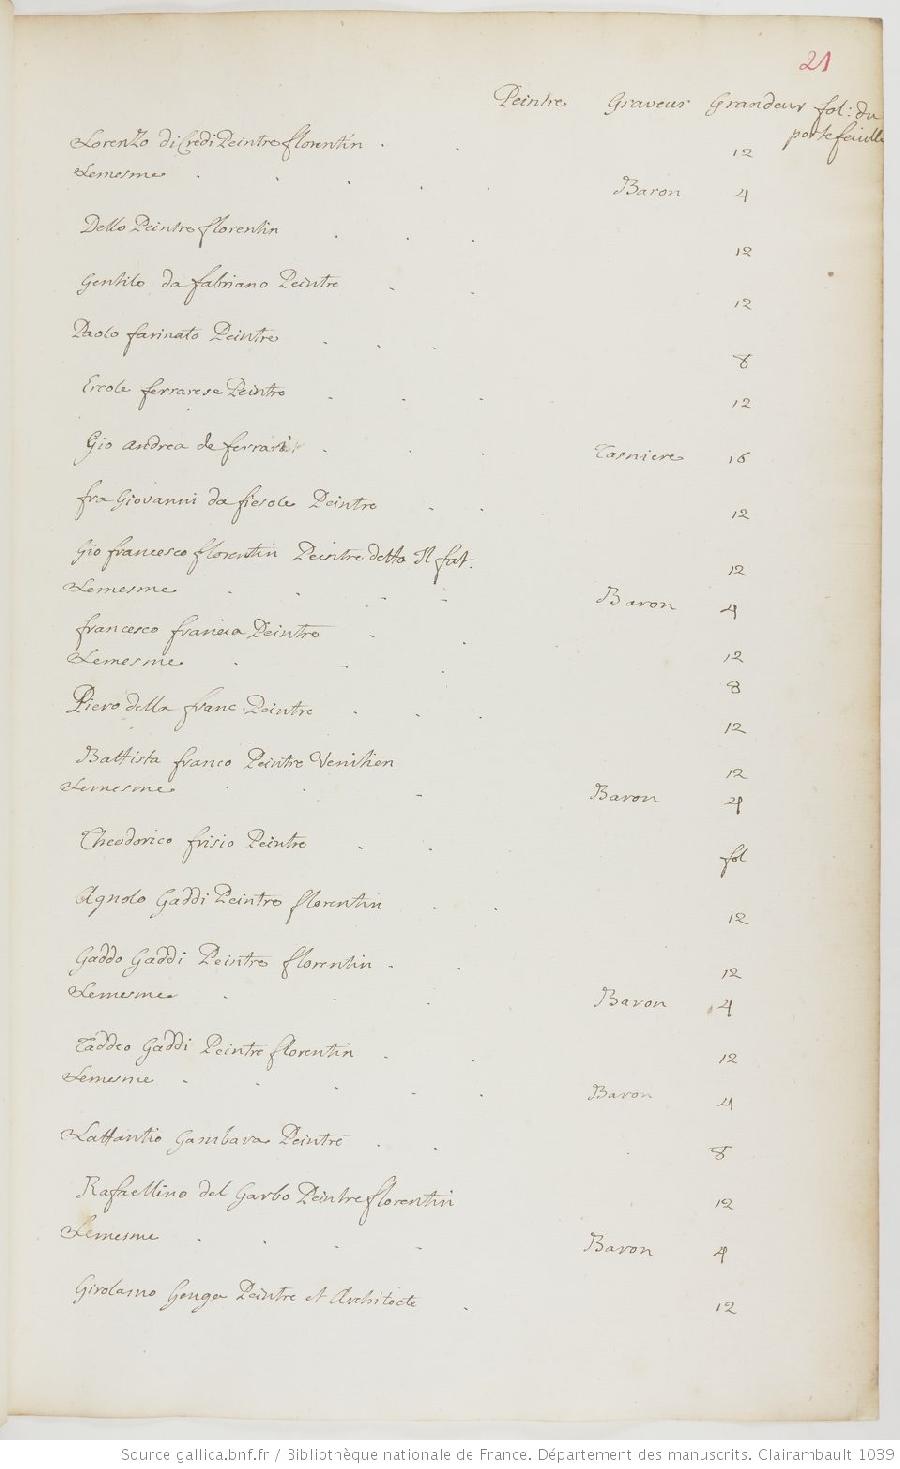 21
Peintre Graveur Grandeur fol: du portefeuille
Lorenzo di Credi Peintre florentin 12
Lemesme Baron 4
Dello Peintre florentin 12
Gentile da fabriano Peintre 12
Paolo farinato Peintre 8
Ercole ferrarese Peintre 12
Gio andrea de ferrari Tasniere 16
fra Giovanni da fiesole Peintre 12
Gio francesco florentin Peintre detto Il fat. 12
Lemesme Baron 4
francesco francia Peintre 12
Lemesme 8
Piero della franc Peintre 12
Battista franco Peintre Venitien 12
Lemesme Baron 4
Theodorico frisio Peintre fol
Agnolo Gaddi Peintre florentin 12
Gaddo Gaddi Peintre florentin 12
Lemesme Baron 4
Taddeo Gaddi Peintre florentin 12
Lemesme Baron 4
Lattantio Gambara Peintre 8
Rafaellino del Garbo Peintre florentin 12
Lemesme Baron 4
Girolamo Genga Peintre et Architecte 12
Source gallica.bnf.fr / Bibliothèque nationale de France. Département des manuscrits. Clairambault 1039